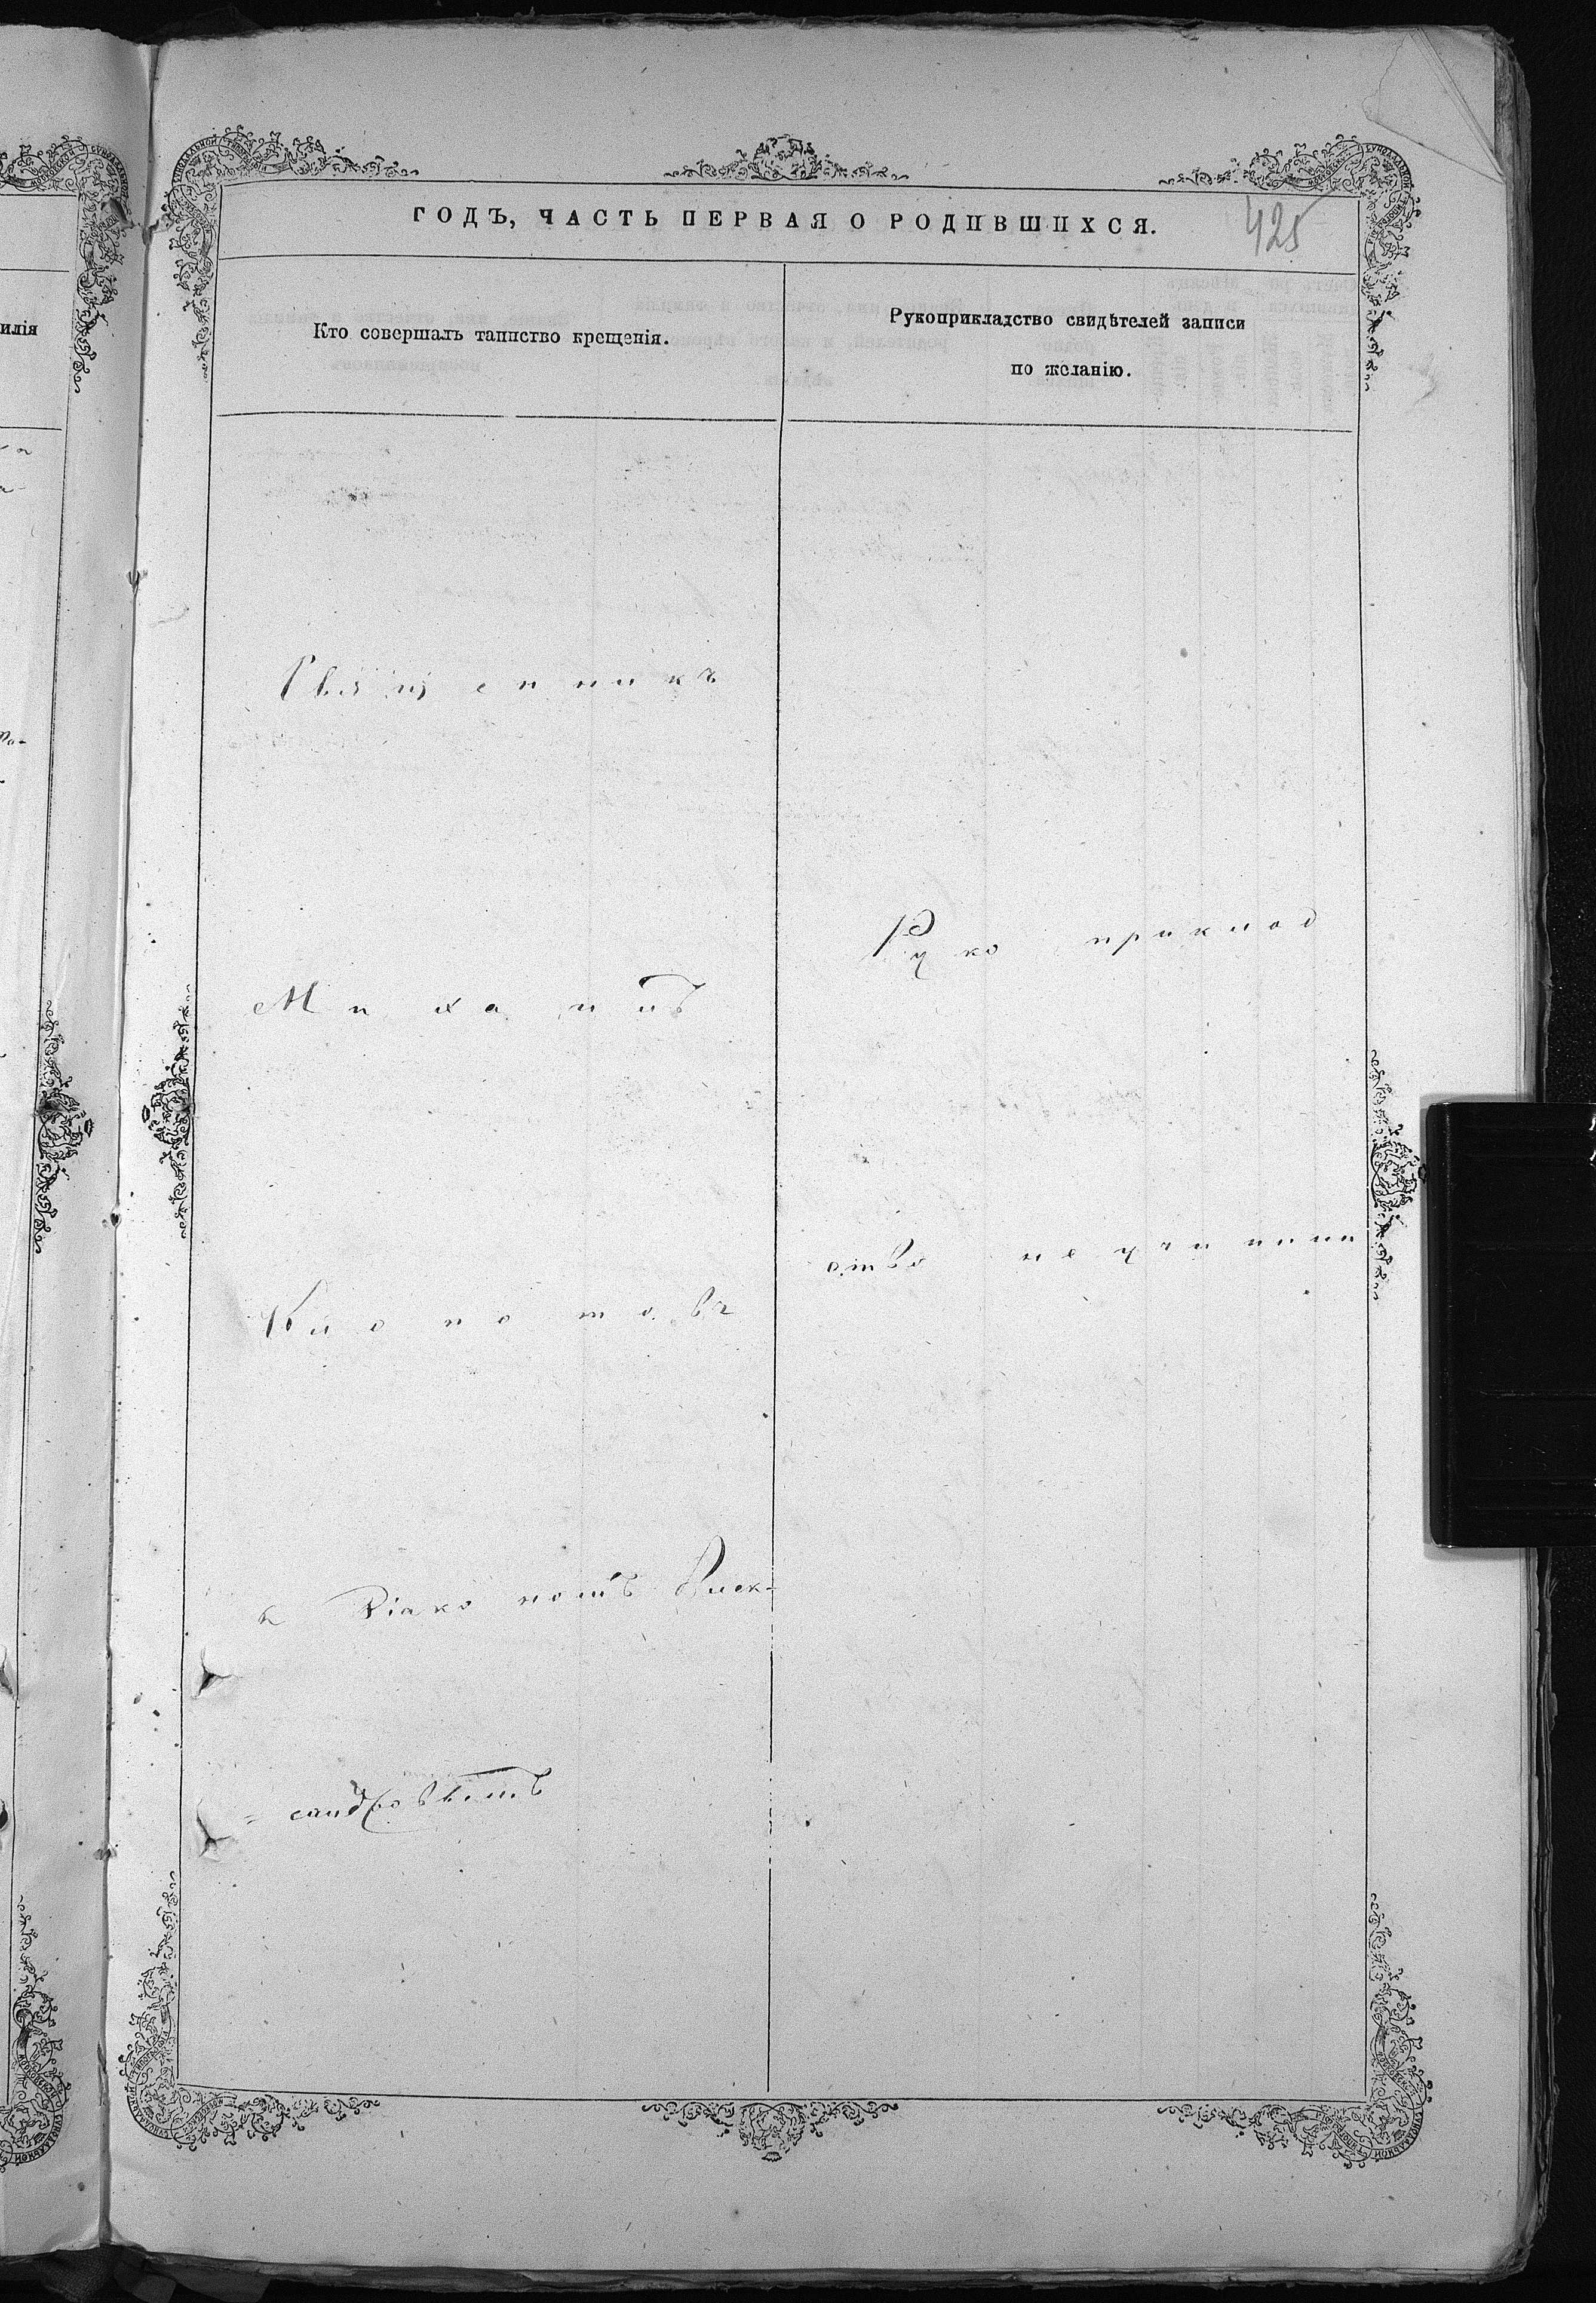 ГОДЪ, ЧАСТЬ ПЕРВАЯ О РОДИВШИХСЯ.
425
илія
Кто совершалъ таинство крещенія.
Рукоприкладство свидѣтелей записи
по желанію.
Священникъ
Михаилъ
с діакономъ Алек=
=сандровымъ
Рукоприклад
ство не учинили